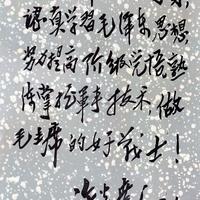 认真学习毛泽东思想
努力提高阶级觉悟熟
练掌握军事技术，做
毛主席的好战士！